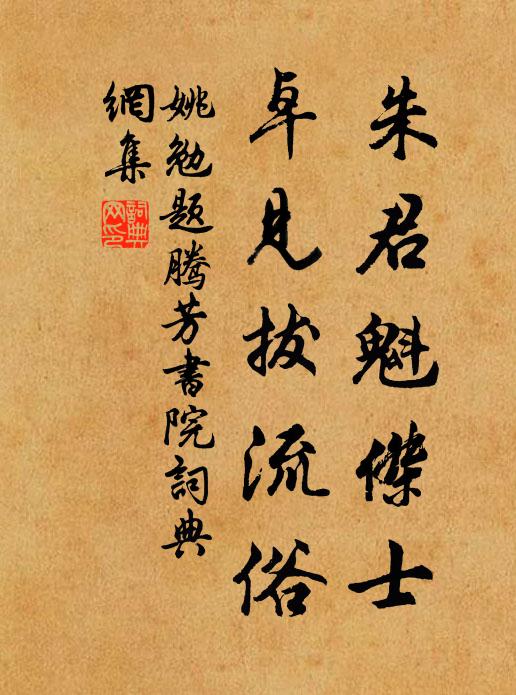 朱君魁傑士
卓見拔流俗
姚勉題騰芳書院詞典
網集
詞典網印